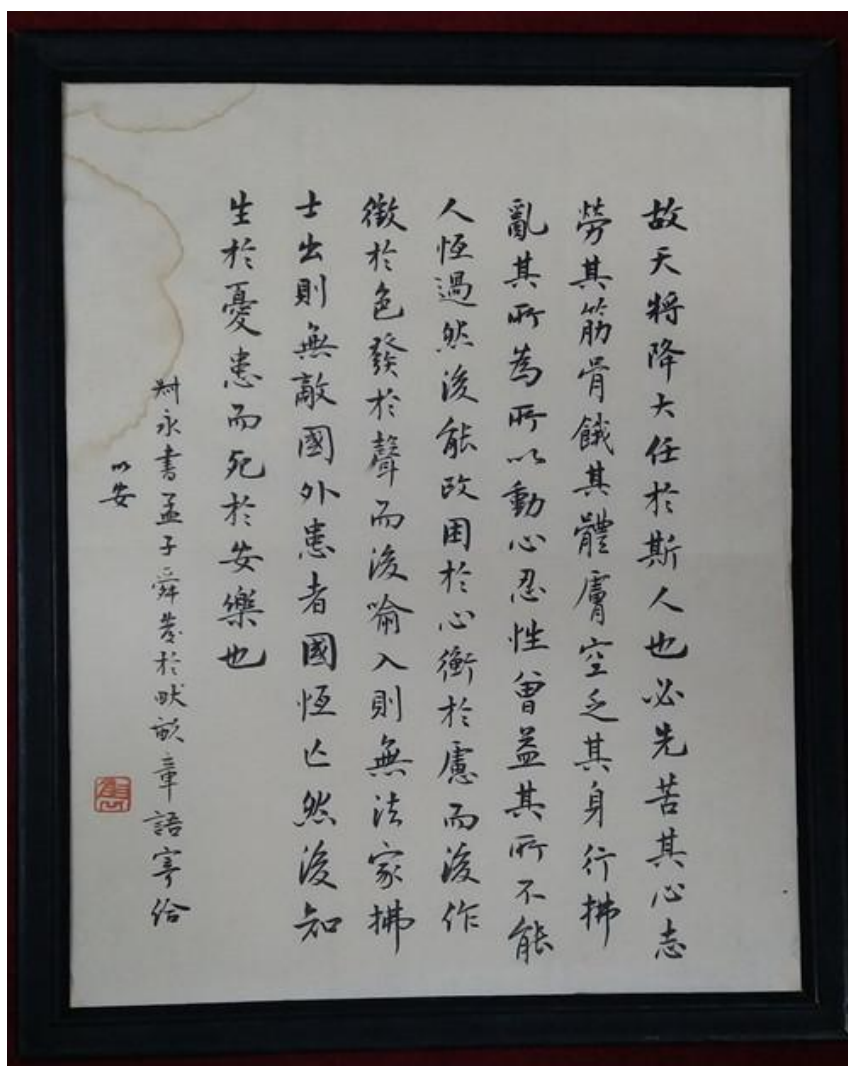 故天將降大任於斯人也必先苦其心志
勞其筋骨餓其體膚空乏其身行拂
亂其所為所以動心忍性曾益其所不能
人恆過然後能改困於心衡於慮而後作
徵於色發於聲而後喻入則無法家拂
士出則無敵國外患者國恆亡然後知
生於憂患而死於安樂也
永書孟子舜發於畎畝章語寄給
以安